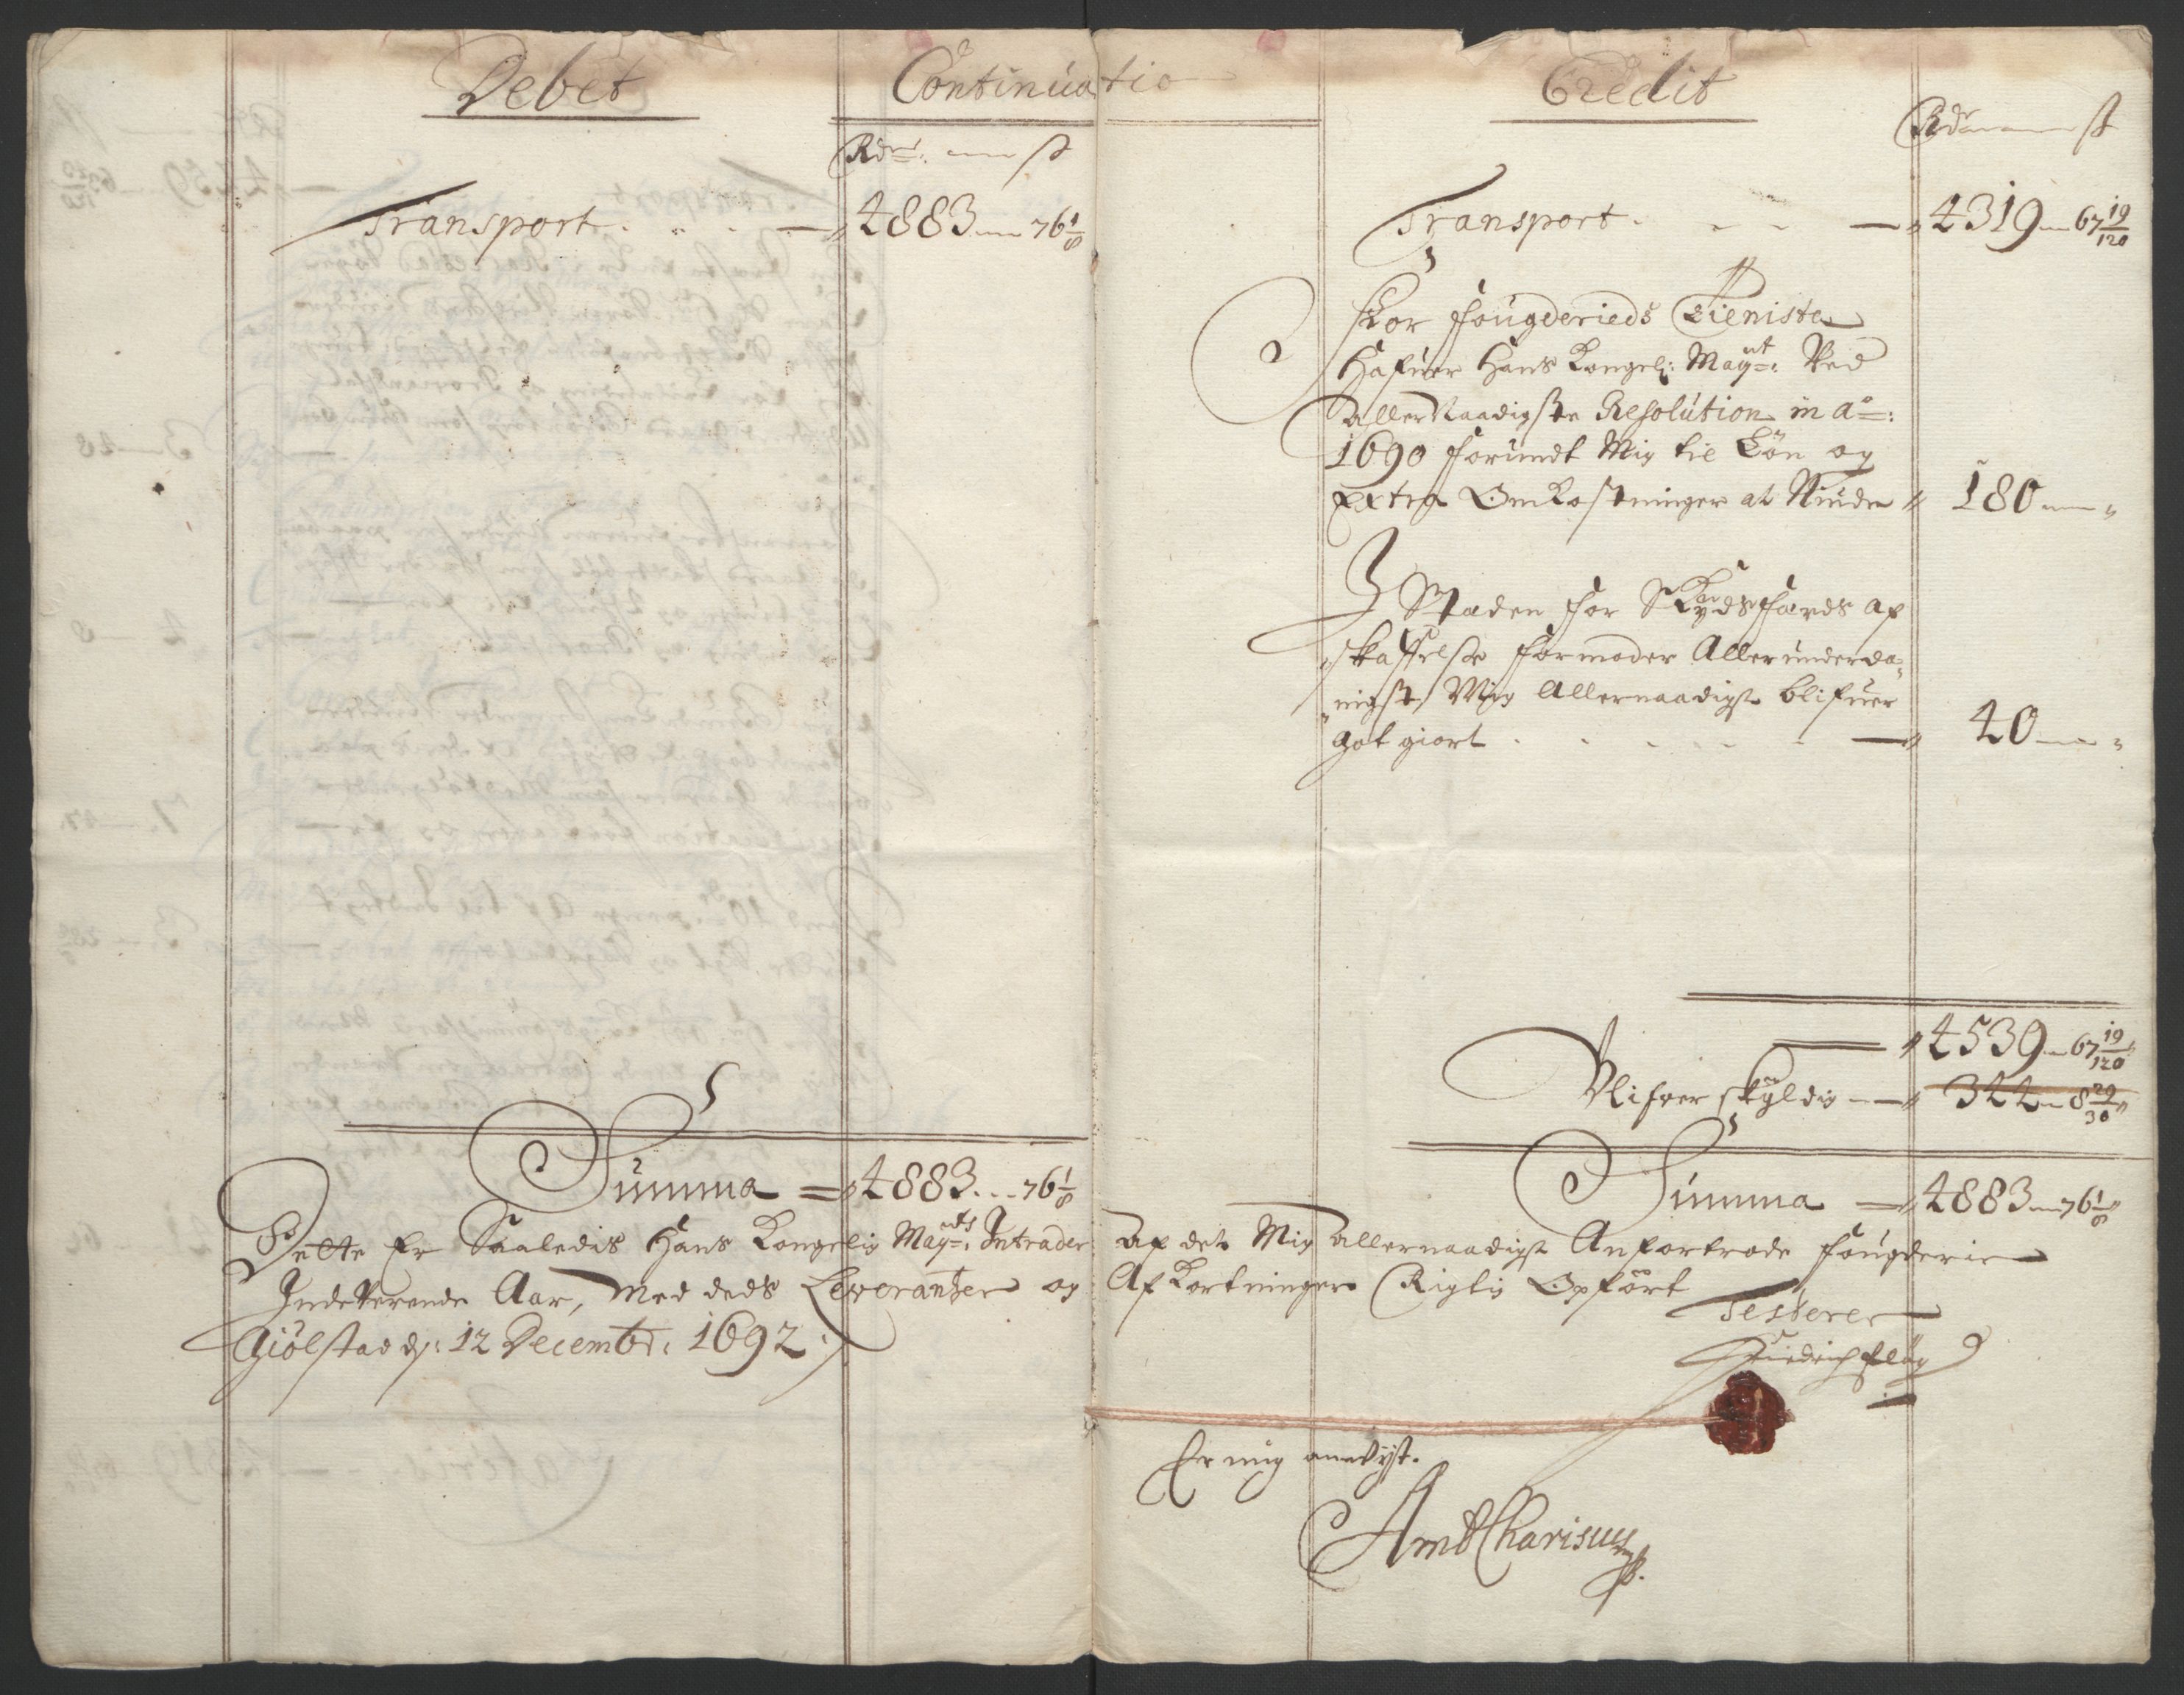 Debet
Continuatio
Rdr: ß
Transport. . . . — 4883 — 76 1/8
Summa = 4883 . . . 76 1/8
Credit
Rdr ß
Transport . . . . — 4319 — 67 19/120
For fougderieds Tieniste
Hafuer Hans Kongel: Mayt: Ved
allerNaadigste Resolution in ao:
1690 forundt Mig til Lön og
Extra Omkostninger at Niude 180
I Staden for Skydsfærds af
skaffelse formoder Allerunderda-
nigst Mig Allernaadigst blifuer
got giort . . . . . . — 40
4539 — 67 19/120
Blifver skyldig — 344 — 8 29/30
Summa = 4883 — 76 1/8
Dette Er Saaledis Hans Kongelig Mayts: Intrader af det Mig allernaadigst Anfortrode fougderie
Indeverende Aar, Med deds Leverantzer og Af Kortninger Rigtig Opfört
Testerer
Giölstad d: 12 Decembr: 1692 :/
Friedrich
Er mig anvijst.
Amb Charisius